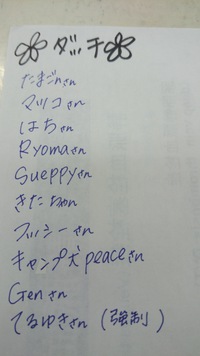 ダッチ
たまごさん
マツコさん
はちさん
Ryomaさん
Sueppyさん
きたちゃん
フッシーさん
キャンプ犬peaceさん
Genさん
てるゆきさん (強制)